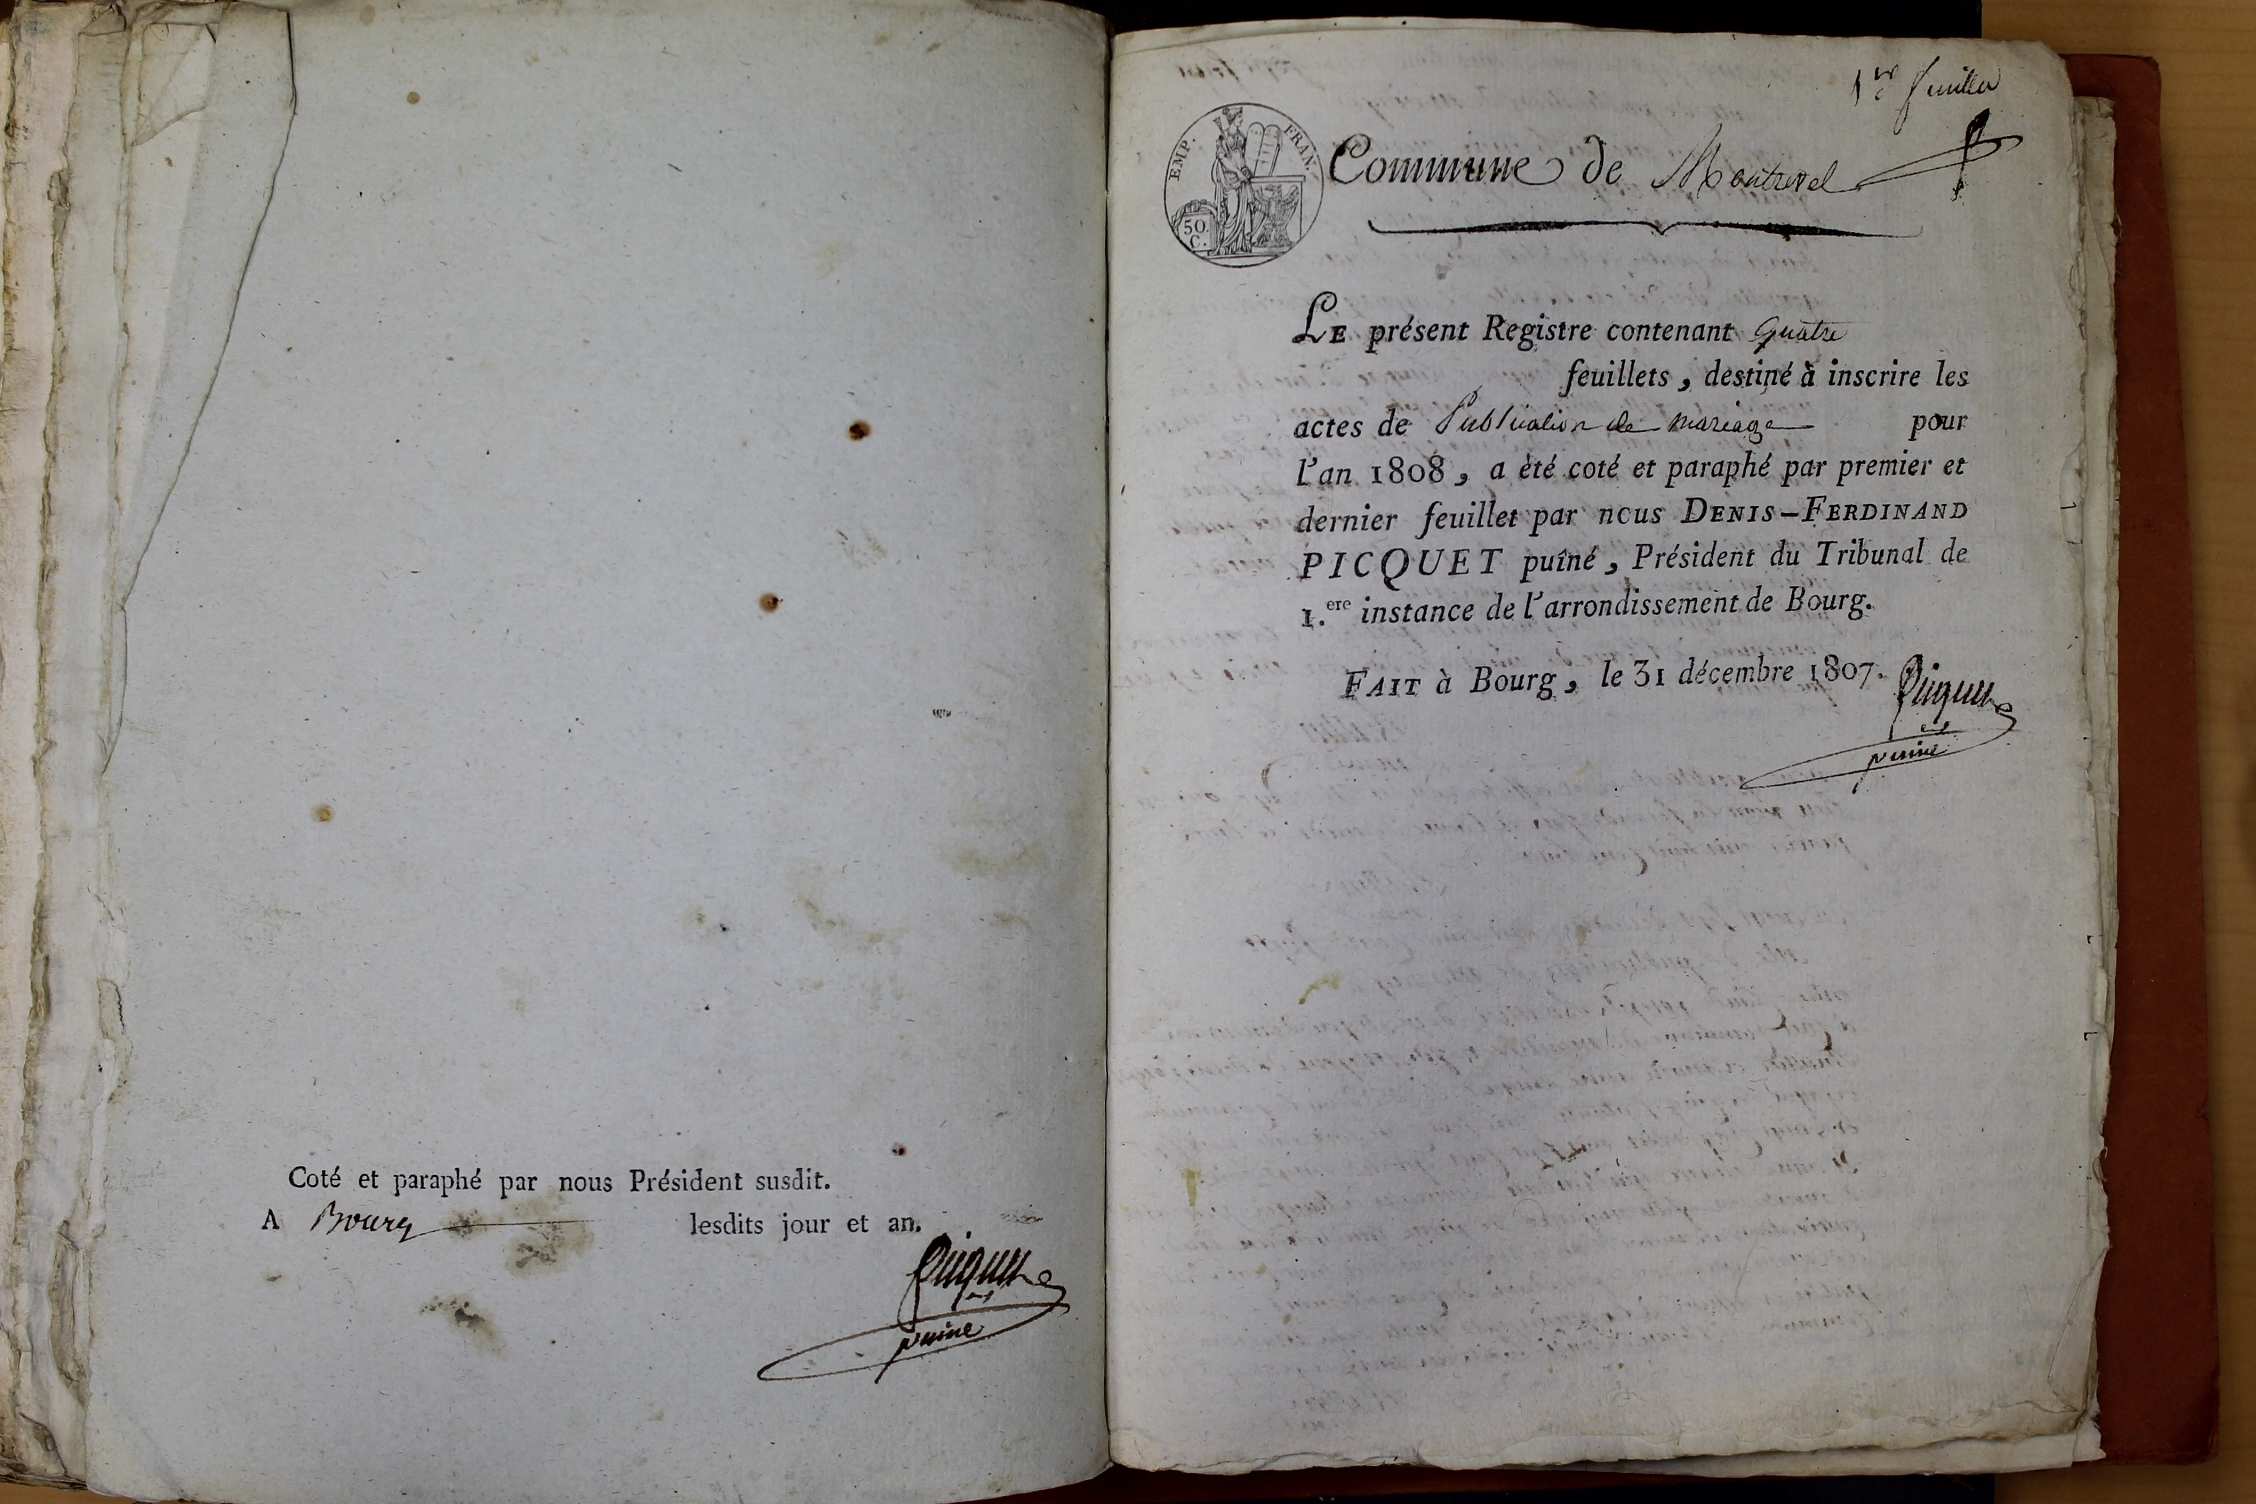 Coté et paraphé par nous Président susdit.
A Bourg lesdits jour et an.
Picquet
puiné
1er feuillet
EMP. FRAN.
50.
C.
Commune de Montrevel
LE présent Registre contenant quatre
feuillets, destiné à inscrire les
actes de Publication de mariage pour
l'an 1808, a été coté et paraphé par premier et
dernier feuillet par nous DENIS-FERDINAND
PICQUET puîné, Président du Tribunal de
1.ere instance de l'arrondissement de Bourg.
FAIT à Bourg, le 31 décembre 1807.
Picquet
puiné